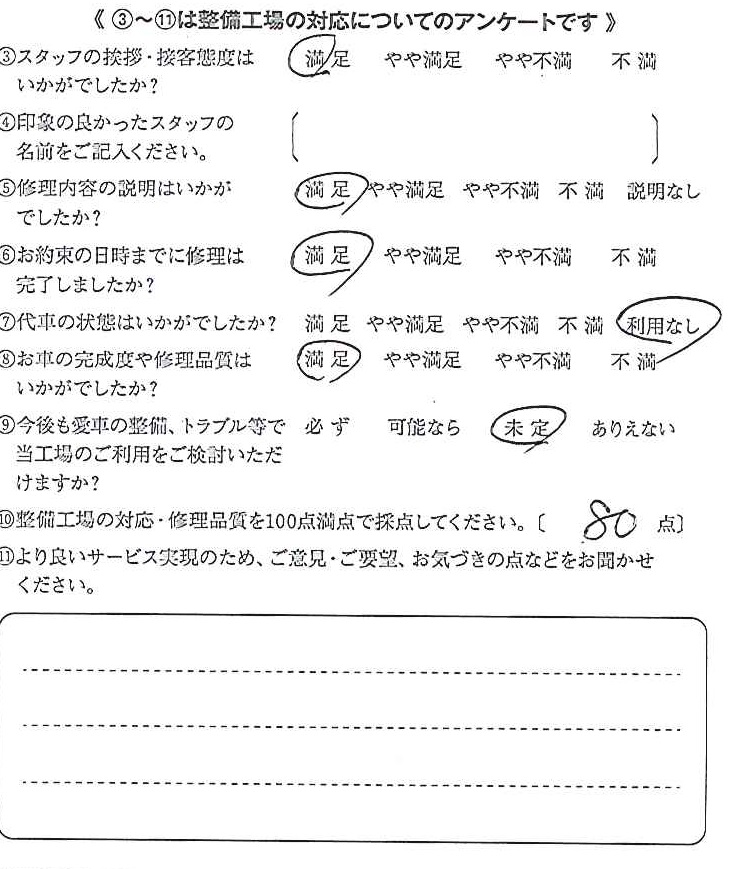 《 ③～⑪は整備工場の対応についてのアンケートです 》
③スタッフの挨拶・接客態度は 満足 やや満足 やや不満 不満
いかがでしたか?
④印象の良かったスタッフの
名前をご記入ください。
⑤修理内容の説明はいかが 満足 やや満足 やや不満 不満 説明なし
でしたか?
⑥お約束の日時までに修理は 満足 やや満足 やや不満 不満
完了しましたか?
⑦代車の状態はいかがでしたか? 満足 やや満足 やや不満 不満 利用なし
⑧お車の完成度や修理品質は 満足 やや満足 やや不満 不満
いかがでしたか?
⑨今後も愛車の整備、トラブル等で 必ず 可能なら 未定 ありえない
当工場のご利用をご検討いただ
けますか?
⑩整備工場の対応・修理品質を100点満点で採点してください。〔 80 点〕
⑪より良いサービス実現のため、ご意見・ご要望、お気づきの点などをお聞かせ
ください。